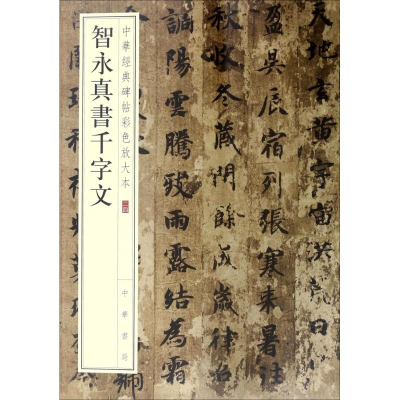 天地玄黃宇宙洪荒日
盈昃辰宿列張寒來暑往
秋收冬藏閏餘成歲律召
調陽雲騰致雨露結為霜
中華經典碑帖彩色放大本
智永真書千字文
中華書局